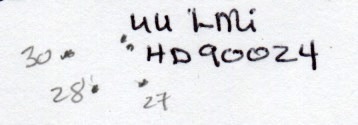 UU LMi
HD90024
30
28
27